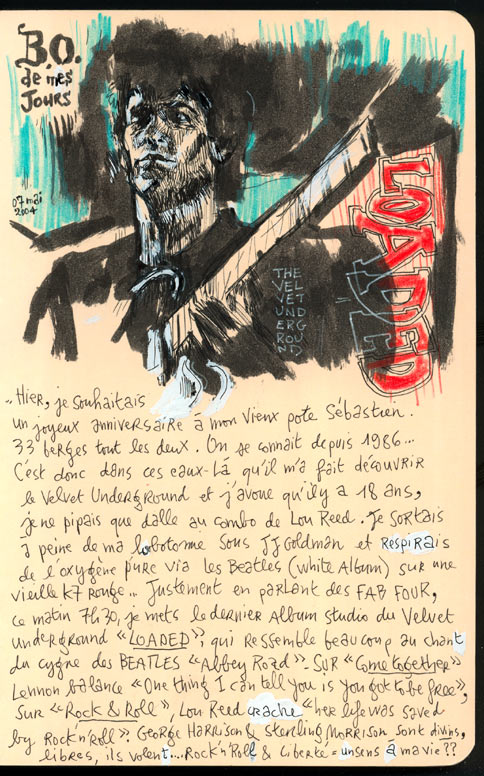 B.O.
de mes
JOURS
07 mai
2004
LOADED
THE
VEL
VET
UND
ERG
ROU
ND
"Hier, je souhaitais
un joyeux anniversaire à mon vieux pote Sébastien.
33 berges tout les deux. On se connait depuis 1986...
C'est donc dans ces eaux-là qu'il m'a fait découvrir
le Velvet Underground et j'avoue qu'il y a 18 ans,
je ne pipais que dalle au combo de Lou Reed. Je sortais
à peine de ma lobotomie sous JJ Goldman et RESPIRAIS
de l'oxygène pure via les Beatles (White Album) sur une
vieille K7 rouge... Justement en parlant des FAB FOUR,
ce matin 7h30, je mets le dernier Album studio du Velvet
underground «LOADED», qui ressemble beaucoup au chant
du cygne des BEATLES «Abbey Road». SUR «Come together»
Lennon balance «One thing I can tell you is you got to be free»,
sur «Rock & Roll», Lou Reed crache «her life was saved
by Rock n'roll». George Harrison & Sterling Morrison sont divins,
libres, ils volent.... Rock'n'Roll & liberté = un sens à ma vie??